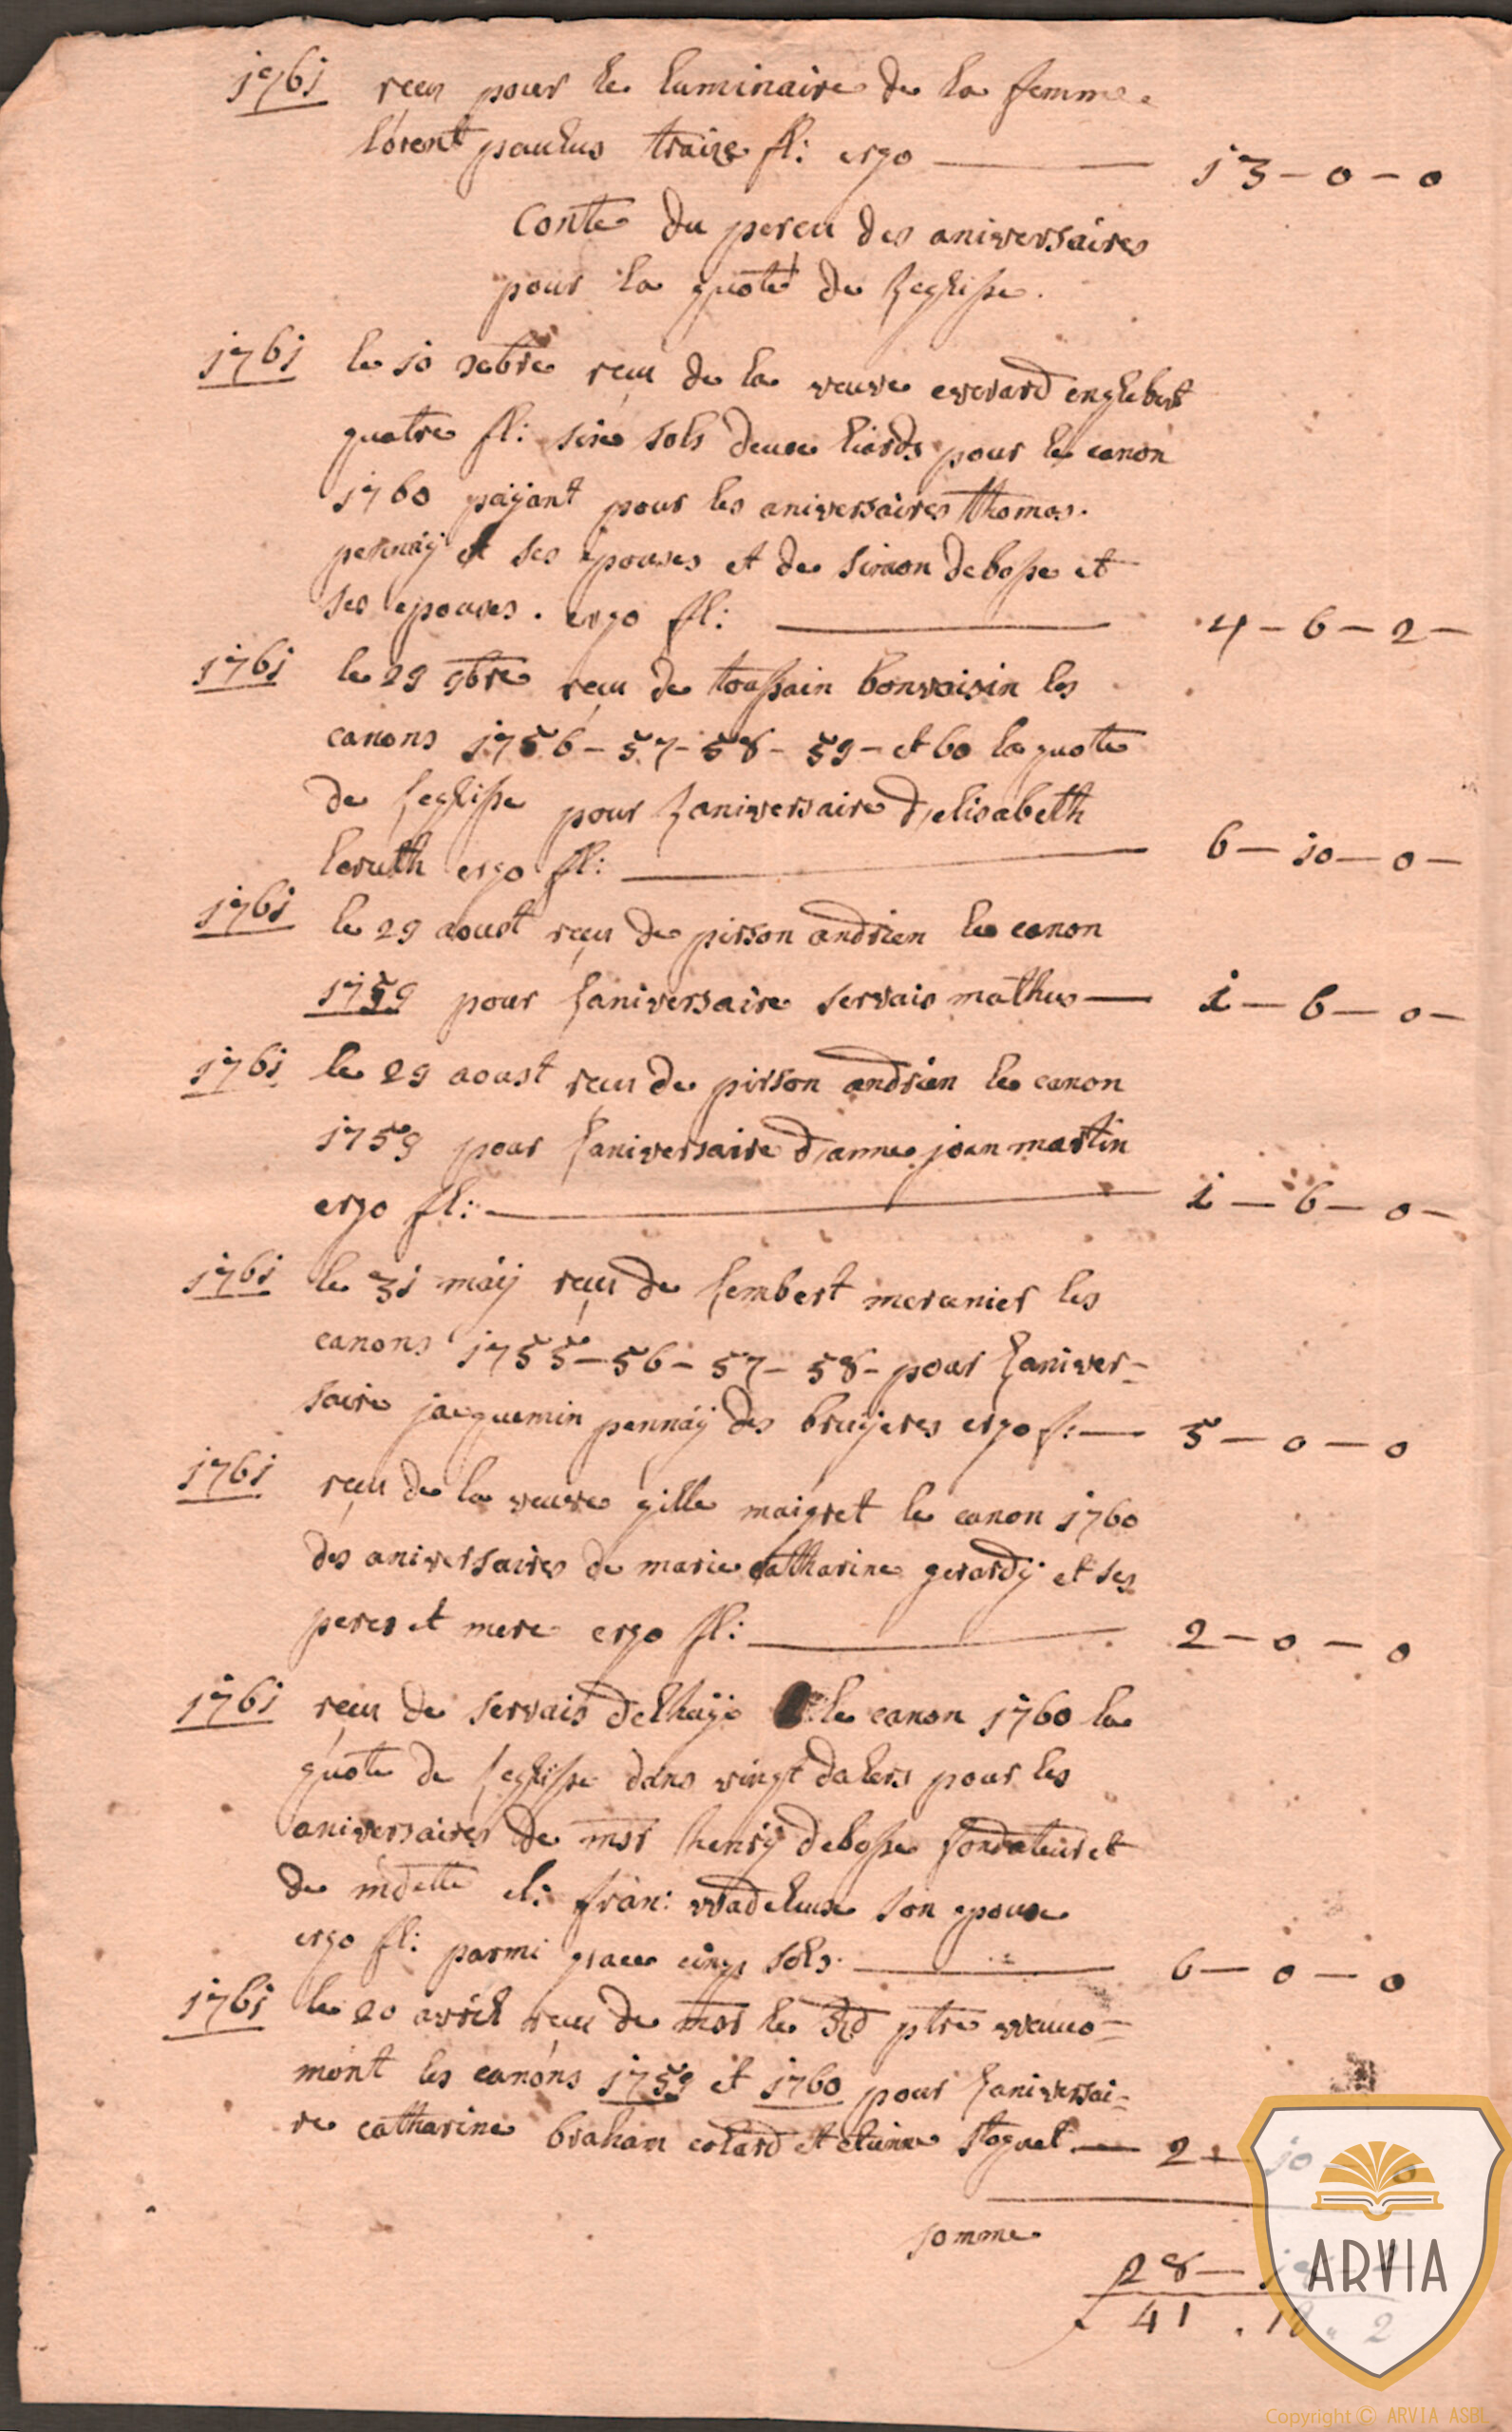 1761 recu pour le luminaire de la femme
lorent paulus traize fl: ergo 13 - 0 - 0
Conte du percu des aniversaires
pour la quote de l'eglisse.
1761 le 10 xbre recu de la veuve everard englebert
quatre fl: six sols deux liards pour le canon
1760 paijant pour les aniversaires thomas
pennaÿ et ses epouses et de simon debosse et
ses epouses. ergo fl: 4 - 6 - 2 -
1761 le 29 9bre recu de toussain bonvoisin les
canons 1756 - 57 - 58 - 59 - et 60 la quote
de l'eglisse pour l'aniversaire d'elisabeth
loruth ergo fl: 6 - 10 - 0 -
1761 le 29 aoust recu de pirson andrien le canon
1759 pour l'aniversaire servais mathus 1 - 6 - 0 -
1761 le 29 aoust recu de pirson andrien le canon
1759 pour l'aniversaire d'anne joan martin
ergo fl: 1 - 6 - 0 -
1761 le 31 maÿ reçu de lembert meranier les
canons 1755 - 56 - 57 - 58 - pour l'aniver-
saire jacquemin pennaÿ des bruÿeres ergo f: 5 - 0 - 0
1761 reçu de la veuve gille maigret le canon 1760
des aniversaires de marie catharine gerardÿ et ses
peres et mere ergo fl: 2 - 0 - 0
1761 reçu de servais delhaÿe le canon 1760 la
quote de l'eglisse dans vingt dalers pour les
aniversaires de msr henrÿ debosse fondateur et
de mdelle el: fran: wadeleux son epouse
ergo fl: parmi grace cinq sols. 6 - 0 - 0
1761 le 20 avril recu de msr le Rd ptre wauco-
mont les canons 1759 et 1760 pour l'aniversai-
re catharine braham colard et etienne stoquet 2 - 10 - 0
somme
28 - 18 - 2
f 41 . 18 . 2
ARVIA
Copyright © ARVIA ASBL